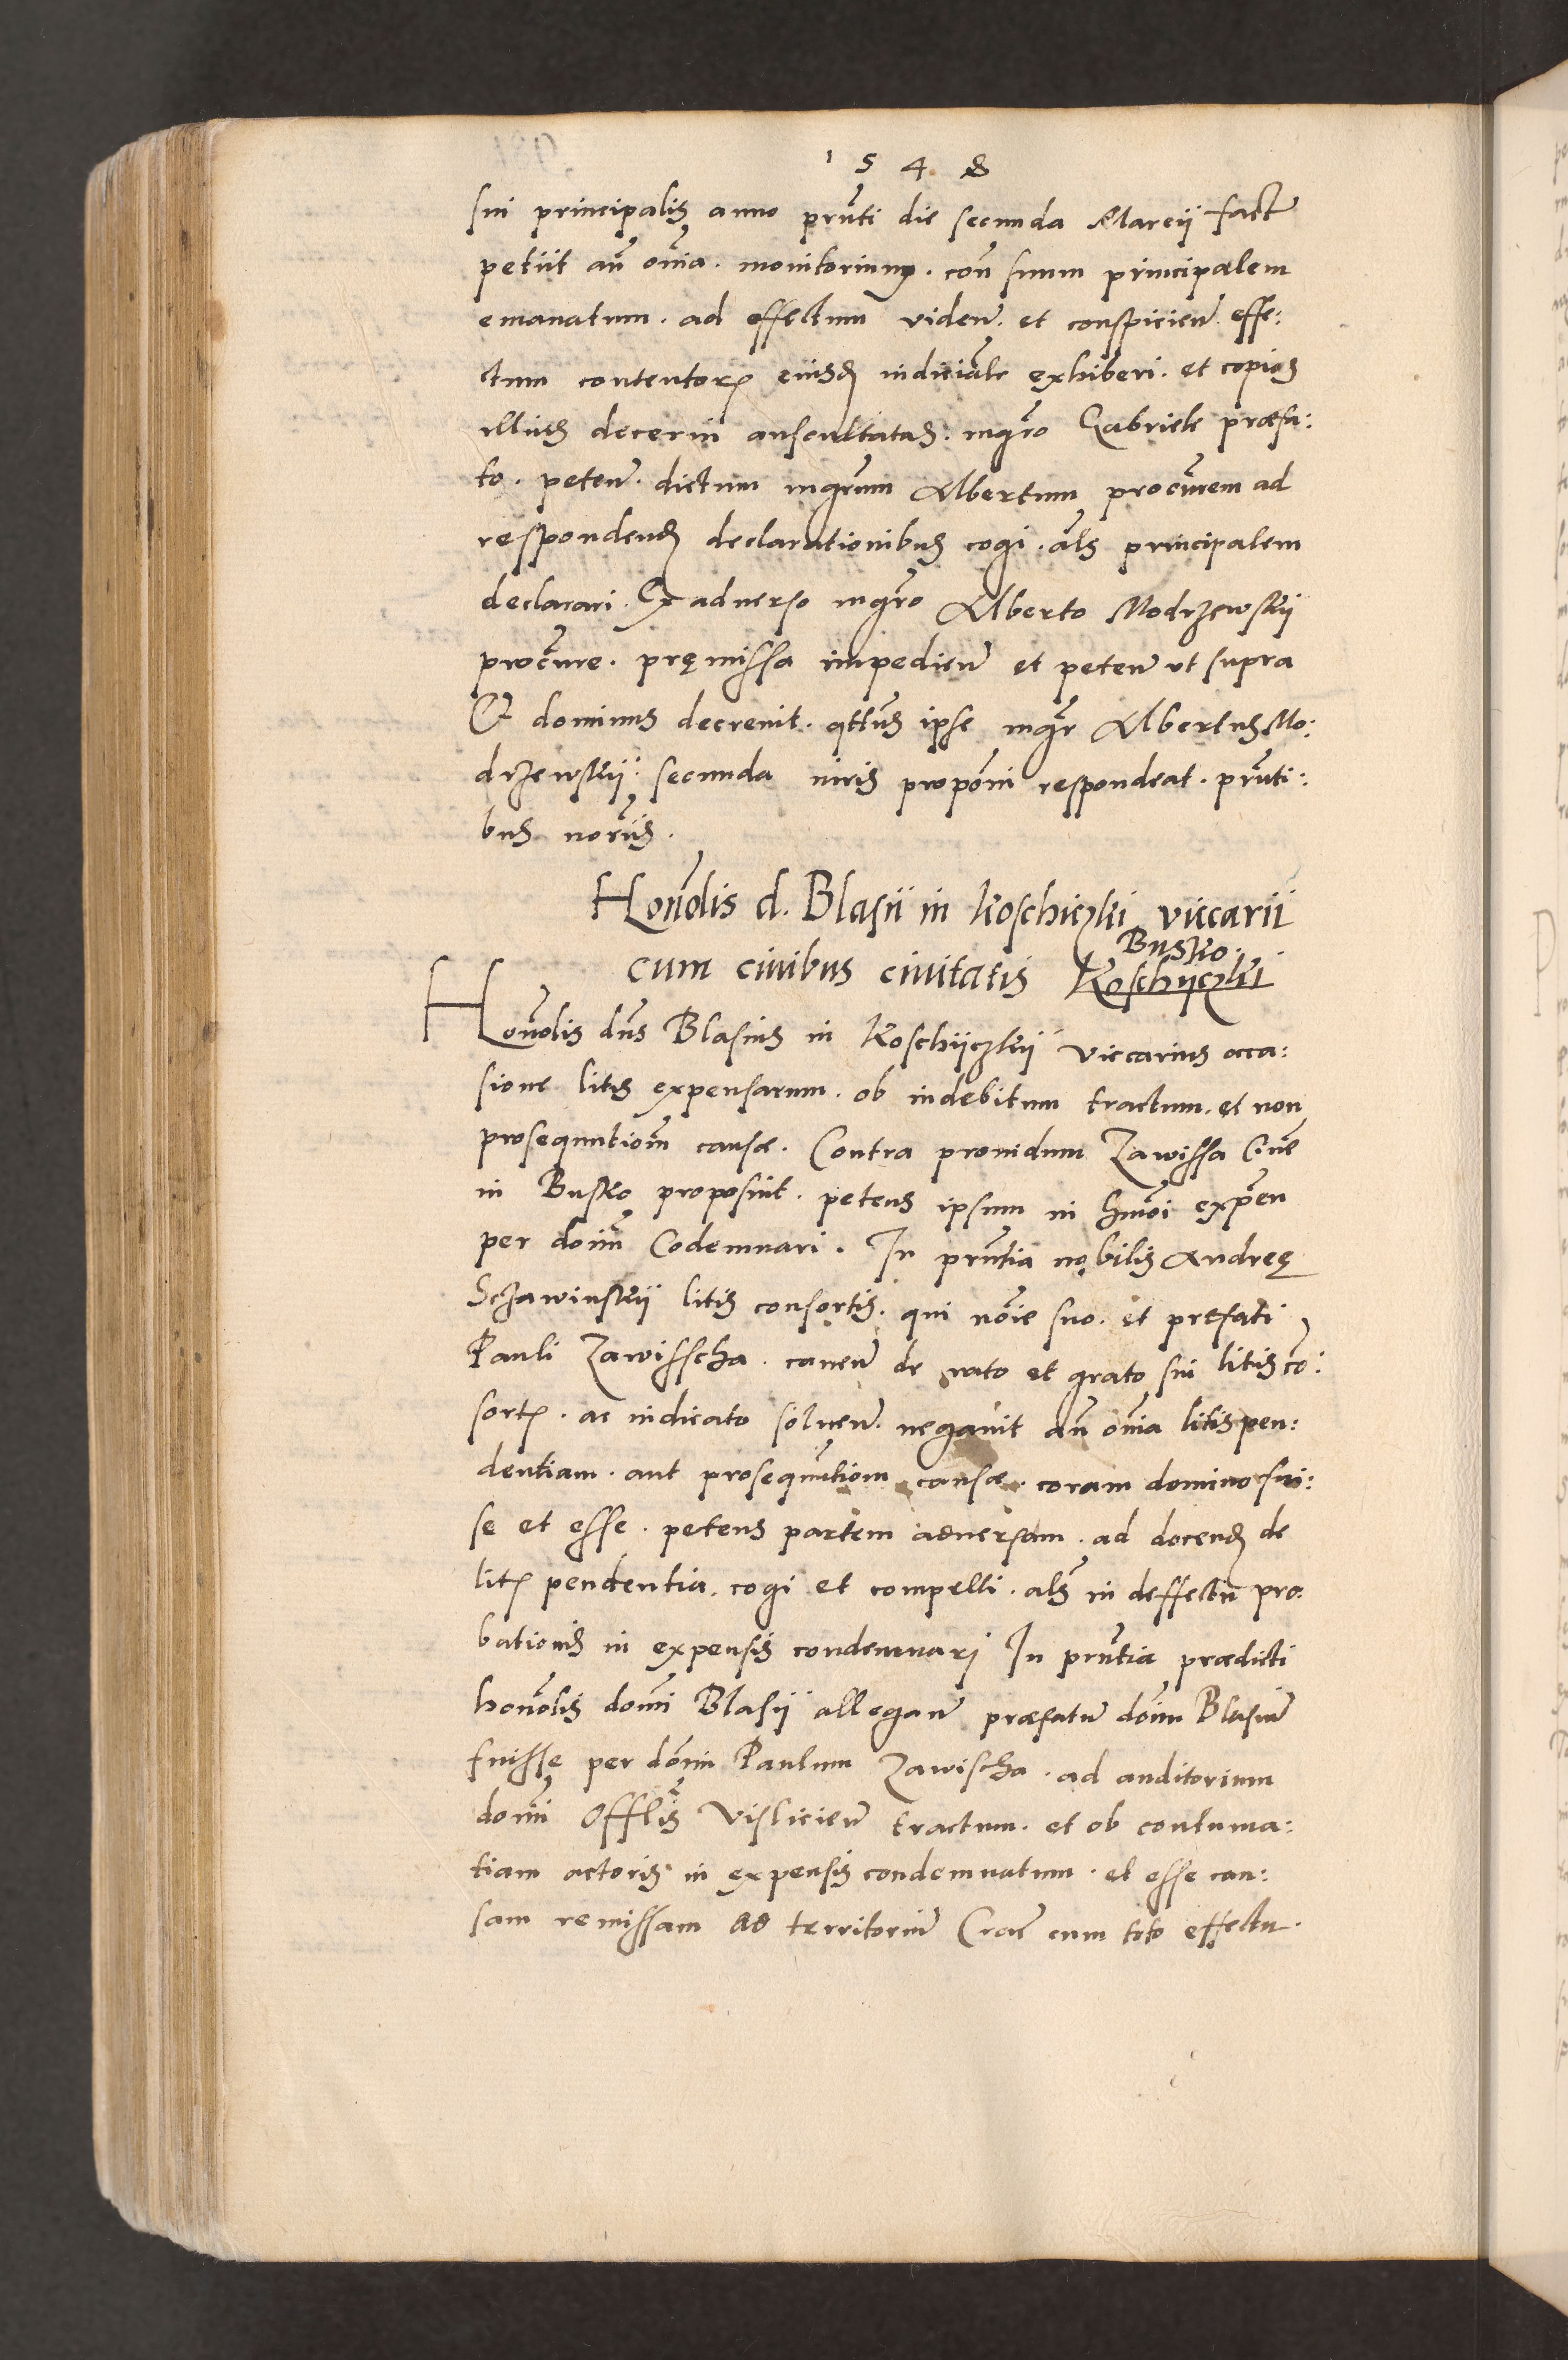 1548
sui principalis anno pñti die secunda Marcii fact
petiit añ oĩa. monitorium. coñ suum principalem
emanatum. ad effectum videñ. et conspicieñ. effe:
ctum contentorũ eiusd iudicialr exhiberi. et copias
illius decerni auscultatas. mgro Gabriele præfa:
to. peteñ. dictum mgrum Albertum procurem ad
respondend declarationibus cogi. als principalem
declarari. Ex adverso mgro Alberto Modrzewskii
procure. pręmissa impedieñ et peteñ ut supra
Et dominus decrevit. qtus ipse mgr Albertus Mo:
drzewskii secunda iuris proponi respondeat. pñti:
bus noriis.
Honolis d. Blasii in Koschiczki viccarii
cum civibus civitatis Koschyczki Busko.
Honolis dñs Blasius in Koschyczkii viccarius occa:
sione litis expensarum. ob indebitum tractum. et non
prosequutiom causæ. Contra providum Zawissa Cive
in Busko proposuit. petens ipsum in hmoi expen
per doim Codemnari. In pñtia nobilis Andreę
Sczawinskii litis consortis. qui noie suo. et præfati
Pauli Zawisscha. caveñ de rato et grato sui litis co:
sortis. ac iudicato solveñ. negavit añ oĩa litispen:
dentiam. aut prosequutiom causæ. coram domino fui:
se et esse. petens partem adversam. ad docend de
litis pendentia. cogi et compelli. als in deffectu pro:
bationis in expensis condemnari In pñtia prædicti
honolis domi Blasii allegañ præfatũ doim Blasiũ
fuisse per doim Paulum Zawischa. ad auditorium
domi Offlis Vislicieñ tractum. et ob contuma:
tiam actoris in expensis condemnatum. et esse cau:
sam remissam ad territoriũ Crac̃ cum toto effectu.